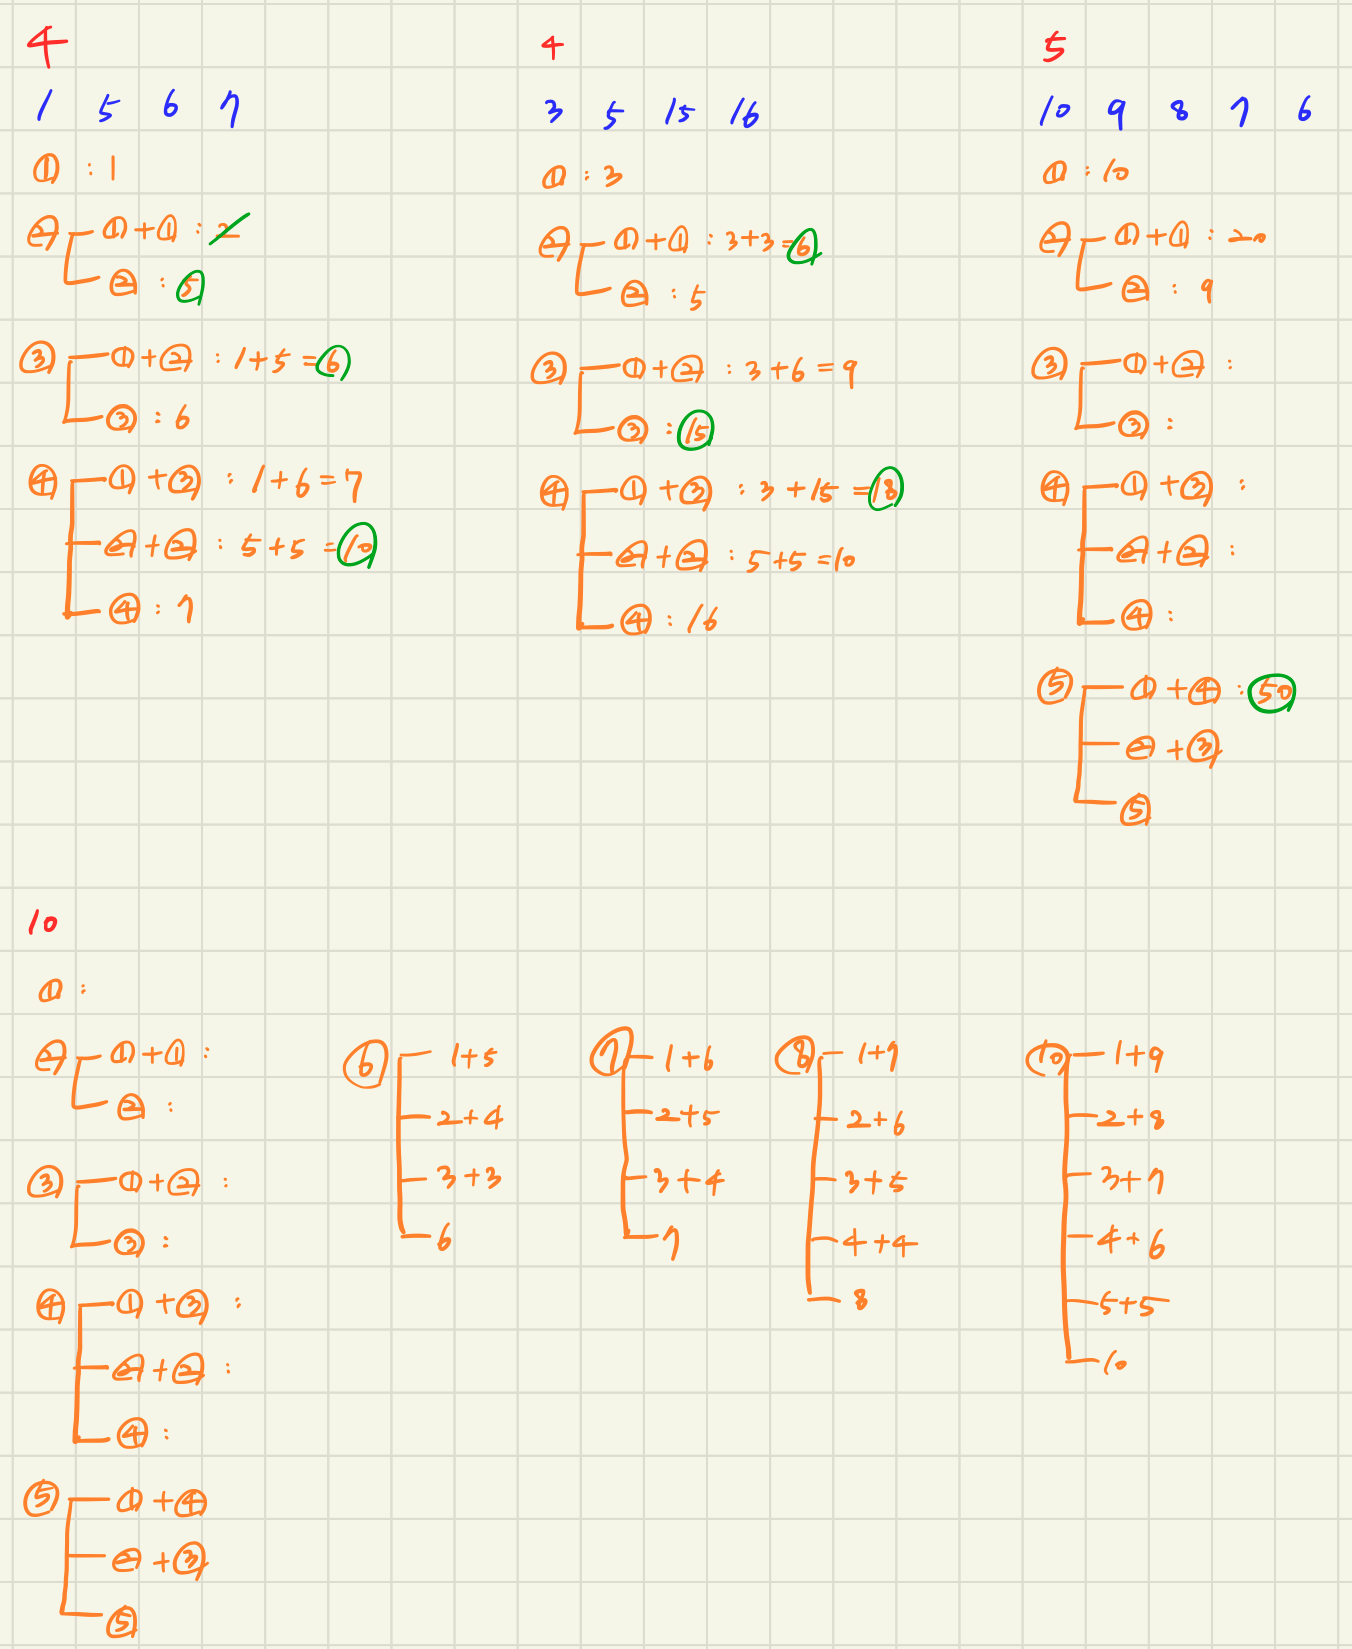 4
1 5 6 7
① : 1
② ①+① : 2
② : 5
③ ①+② : 1+5=6
③ : 6
④ ①+③ : 1+6=7
②+② : 5+5=10
④ : 7
4
3 5 15 16
① : 3
② ①+① : 3+3=6
② : 5
③ ①+② : 3+6=9
③ : 15
④ ①+③ : 3+15=18
②+② : 5+5=10
④ : 16
5
10 9 8 7 6
① : 10
② ①+① : 20
② : 9
③ ①+② :
③ :
④ ①+③ :
②+② :
④ :
⑤ ①+④ : 50
②+③
⑤
10
① :
② ①+① :
② :
③ ①+② :
③ :
④ ①+③ :
②+② :
④ :
⑤ ①+④
②+③
⑤
⑥ 1+5
2+4
3+3
6
⑦ 1+6
2+5
3+4
7
⑧ 1+7
2+6
3+5
4+4
8
⑩ 1+9
2+8
3+7
4+6
5+5
10